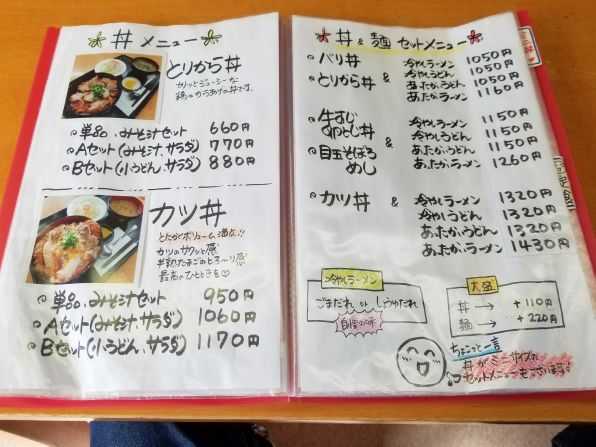 丼 メニュー
とりから丼
カリッとジューシーな
鶏のからあげの丼です。
単品、みそ汁セット 660円
Aセット(みそ汁、サラダ) 770円
Bセット(小うどん、サラダ) 880円
カツ丼
とにかくボリューム満点!!
カツのサクッと感
半熟たまごのとろ〜り感
最高のひとときを♡
単品、みそ汁セット 950円
Aセット(みそ汁、サラダ) 1060円
Bセット(小うどん、サラダ) 1170円
丼 & 麺 セットメニュー
バリ丼
とりから丼
&
冷やしラーメン 1050円
冷やしうどん 1050円
あたたかいうどん 1050円
あたたかいラーメン 1160円
牛すじ
めし丼
目玉そぼろ
めし
&
冷やしラーメン 1150円
冷やしうどん 1150円
あたたかいうどん 1150円
あたたかいラーメン 1260円
カツ丼 &
冷やしラーメン 1320円
冷やしうどん 1320円
あたたかいうどん 1320円
あたたかいラーメン 1430円
冷やしラーメン
ごまだれ or しょうゆだれ
自慢の味
大盛
丼 → +110円
麺 → +220円
ちょこっと一言
丼がミニサイズの
セットメニューもございます